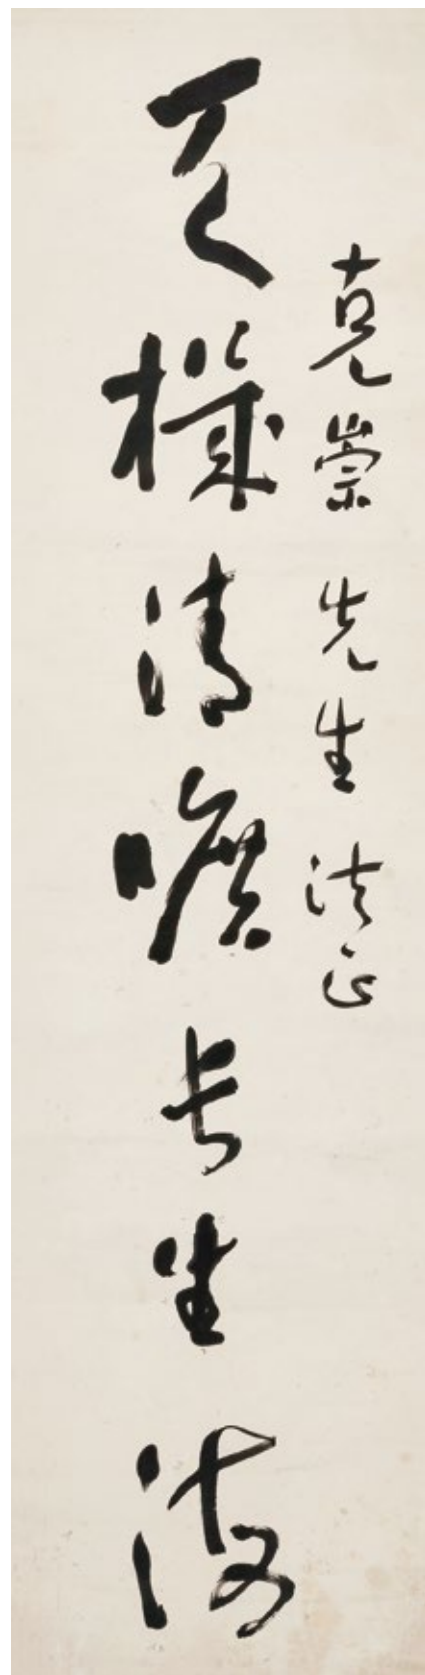 克崇先生法正
天機清曠長生海